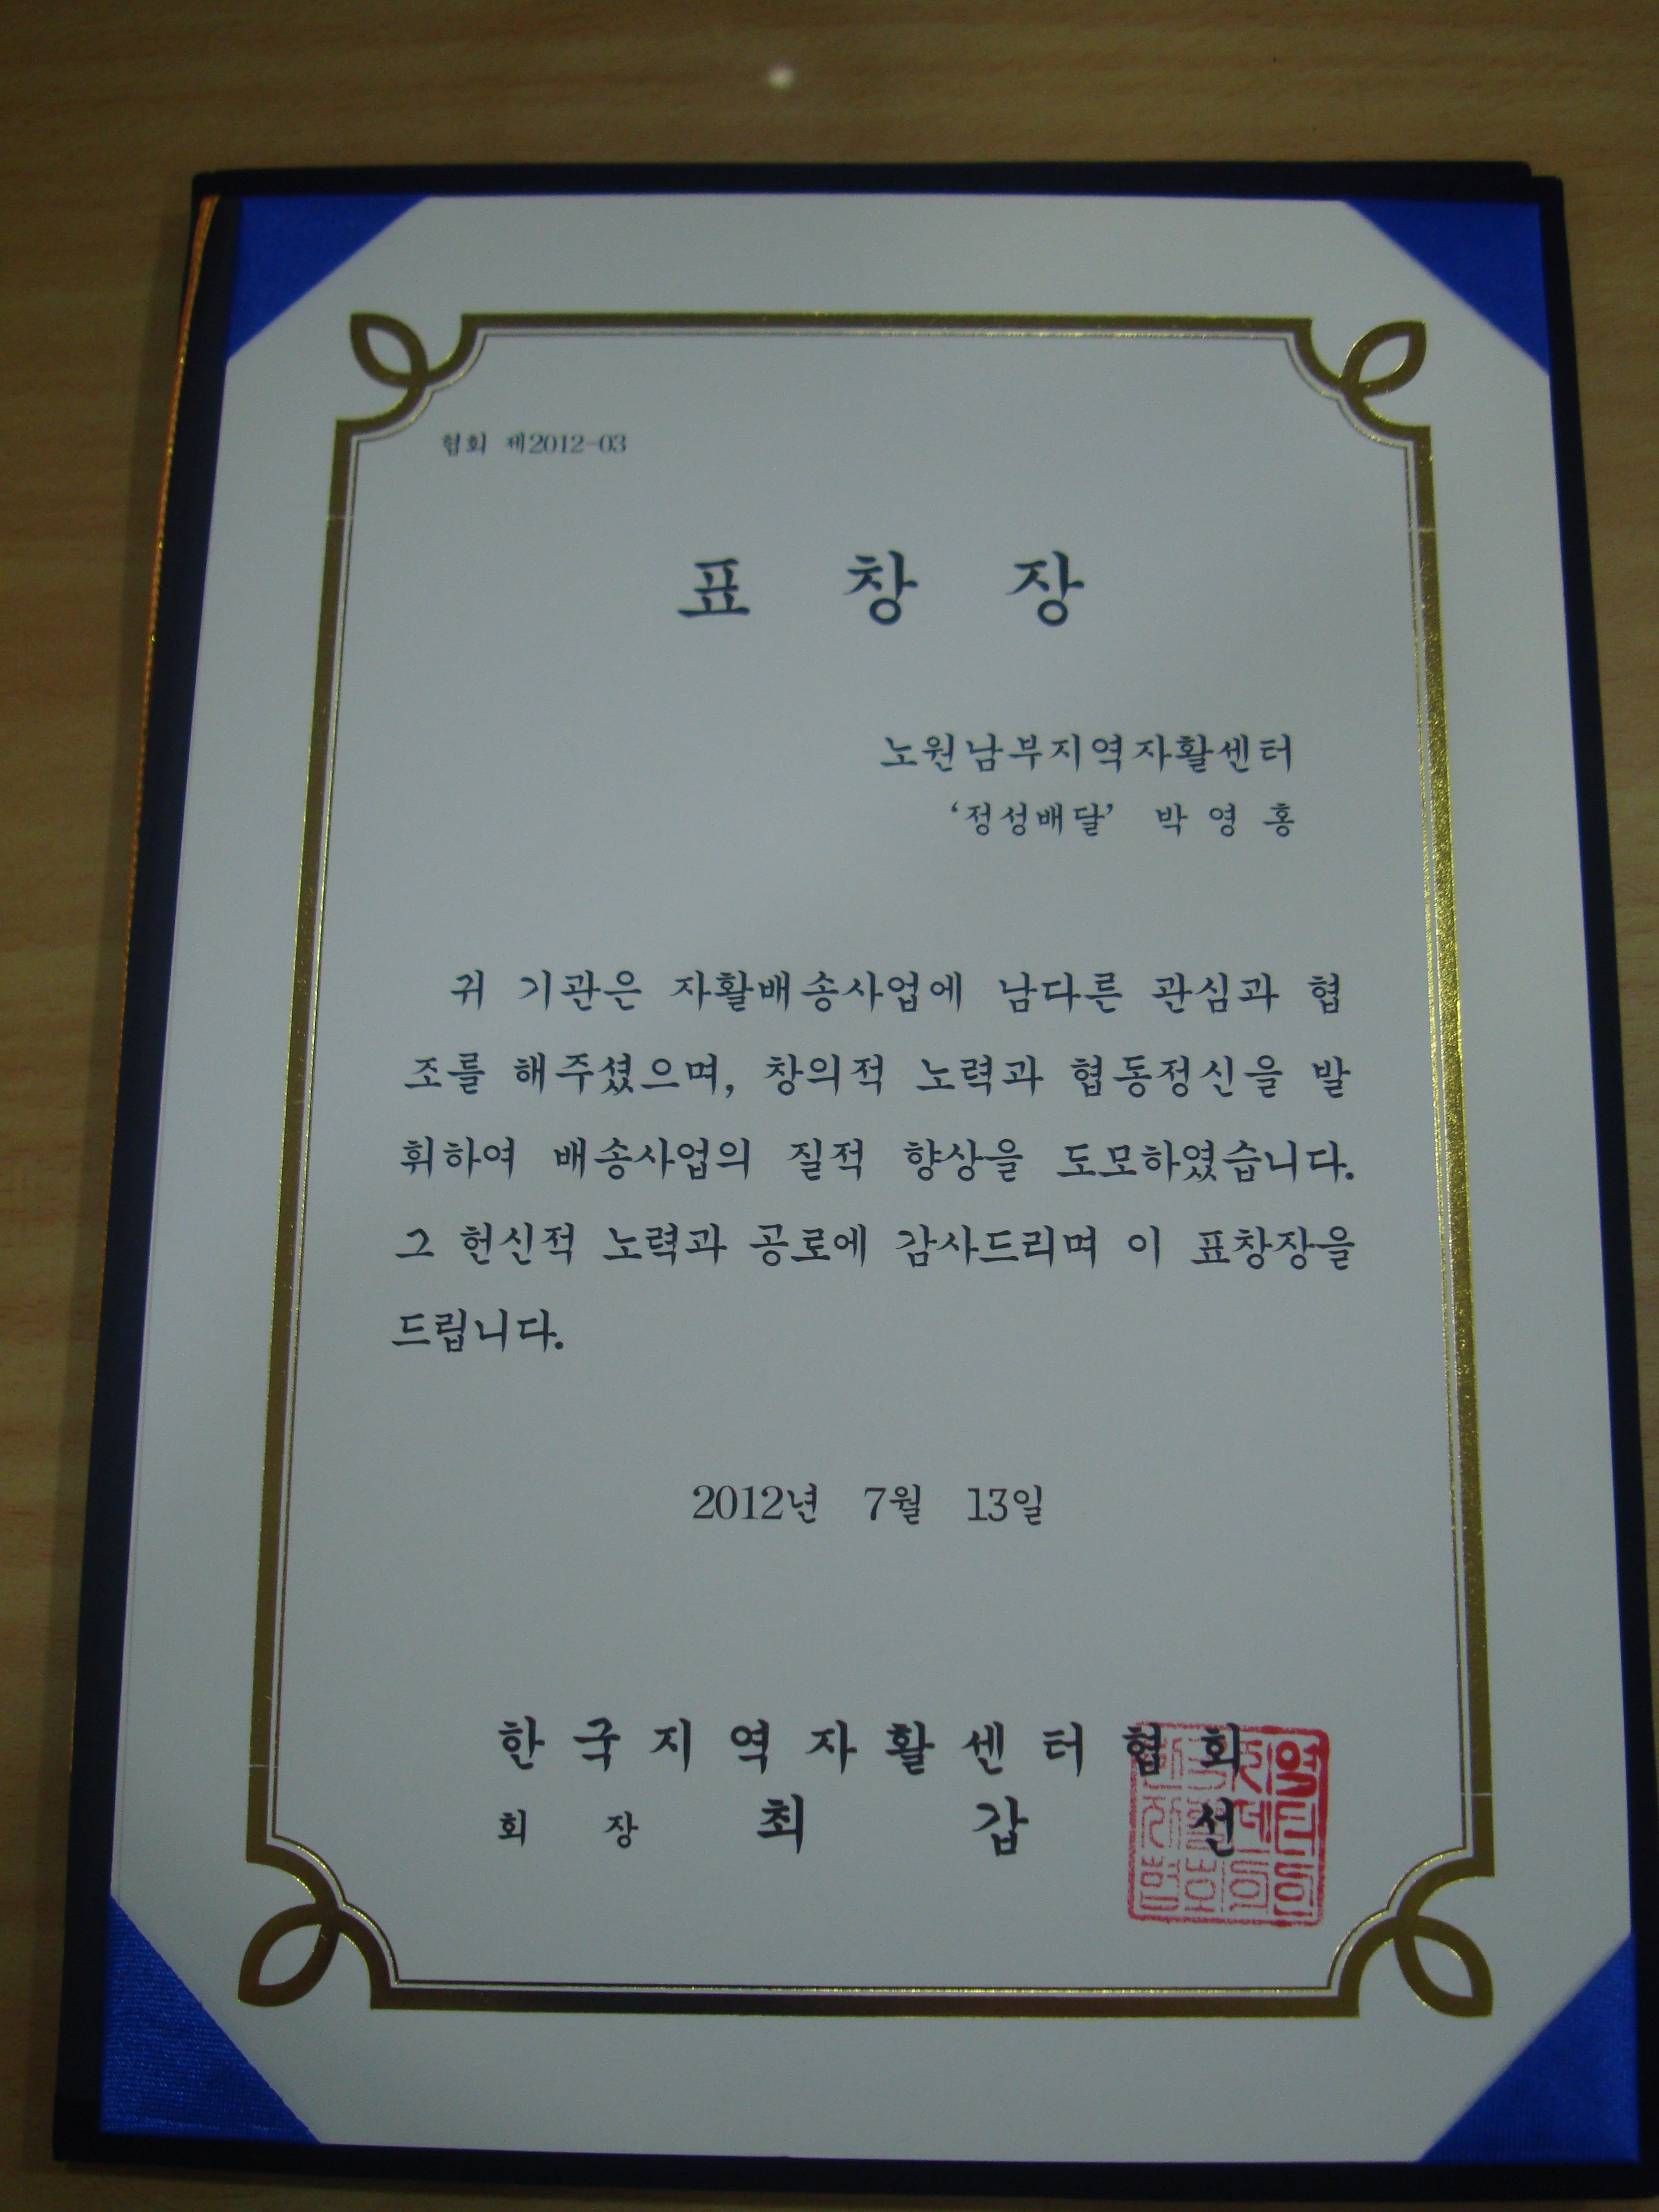 협회 제2012-03
표 창 장
노원남부지역자활센터
‘정성배달’ 박 영 홍
귀 기관은 자활배송사업에 남다른 관심과 협
조를 해주셨으며, 창의적 노력과 협동정신을 발
휘하여 배송사업의 질적 향상을 도모하였습니다.
그 헌신적 노력과 공로에 감사드리며 이 표창장을
드립니다.
2012년 7월 13일
한국지역자활센터협회
회 장 최 갑 선